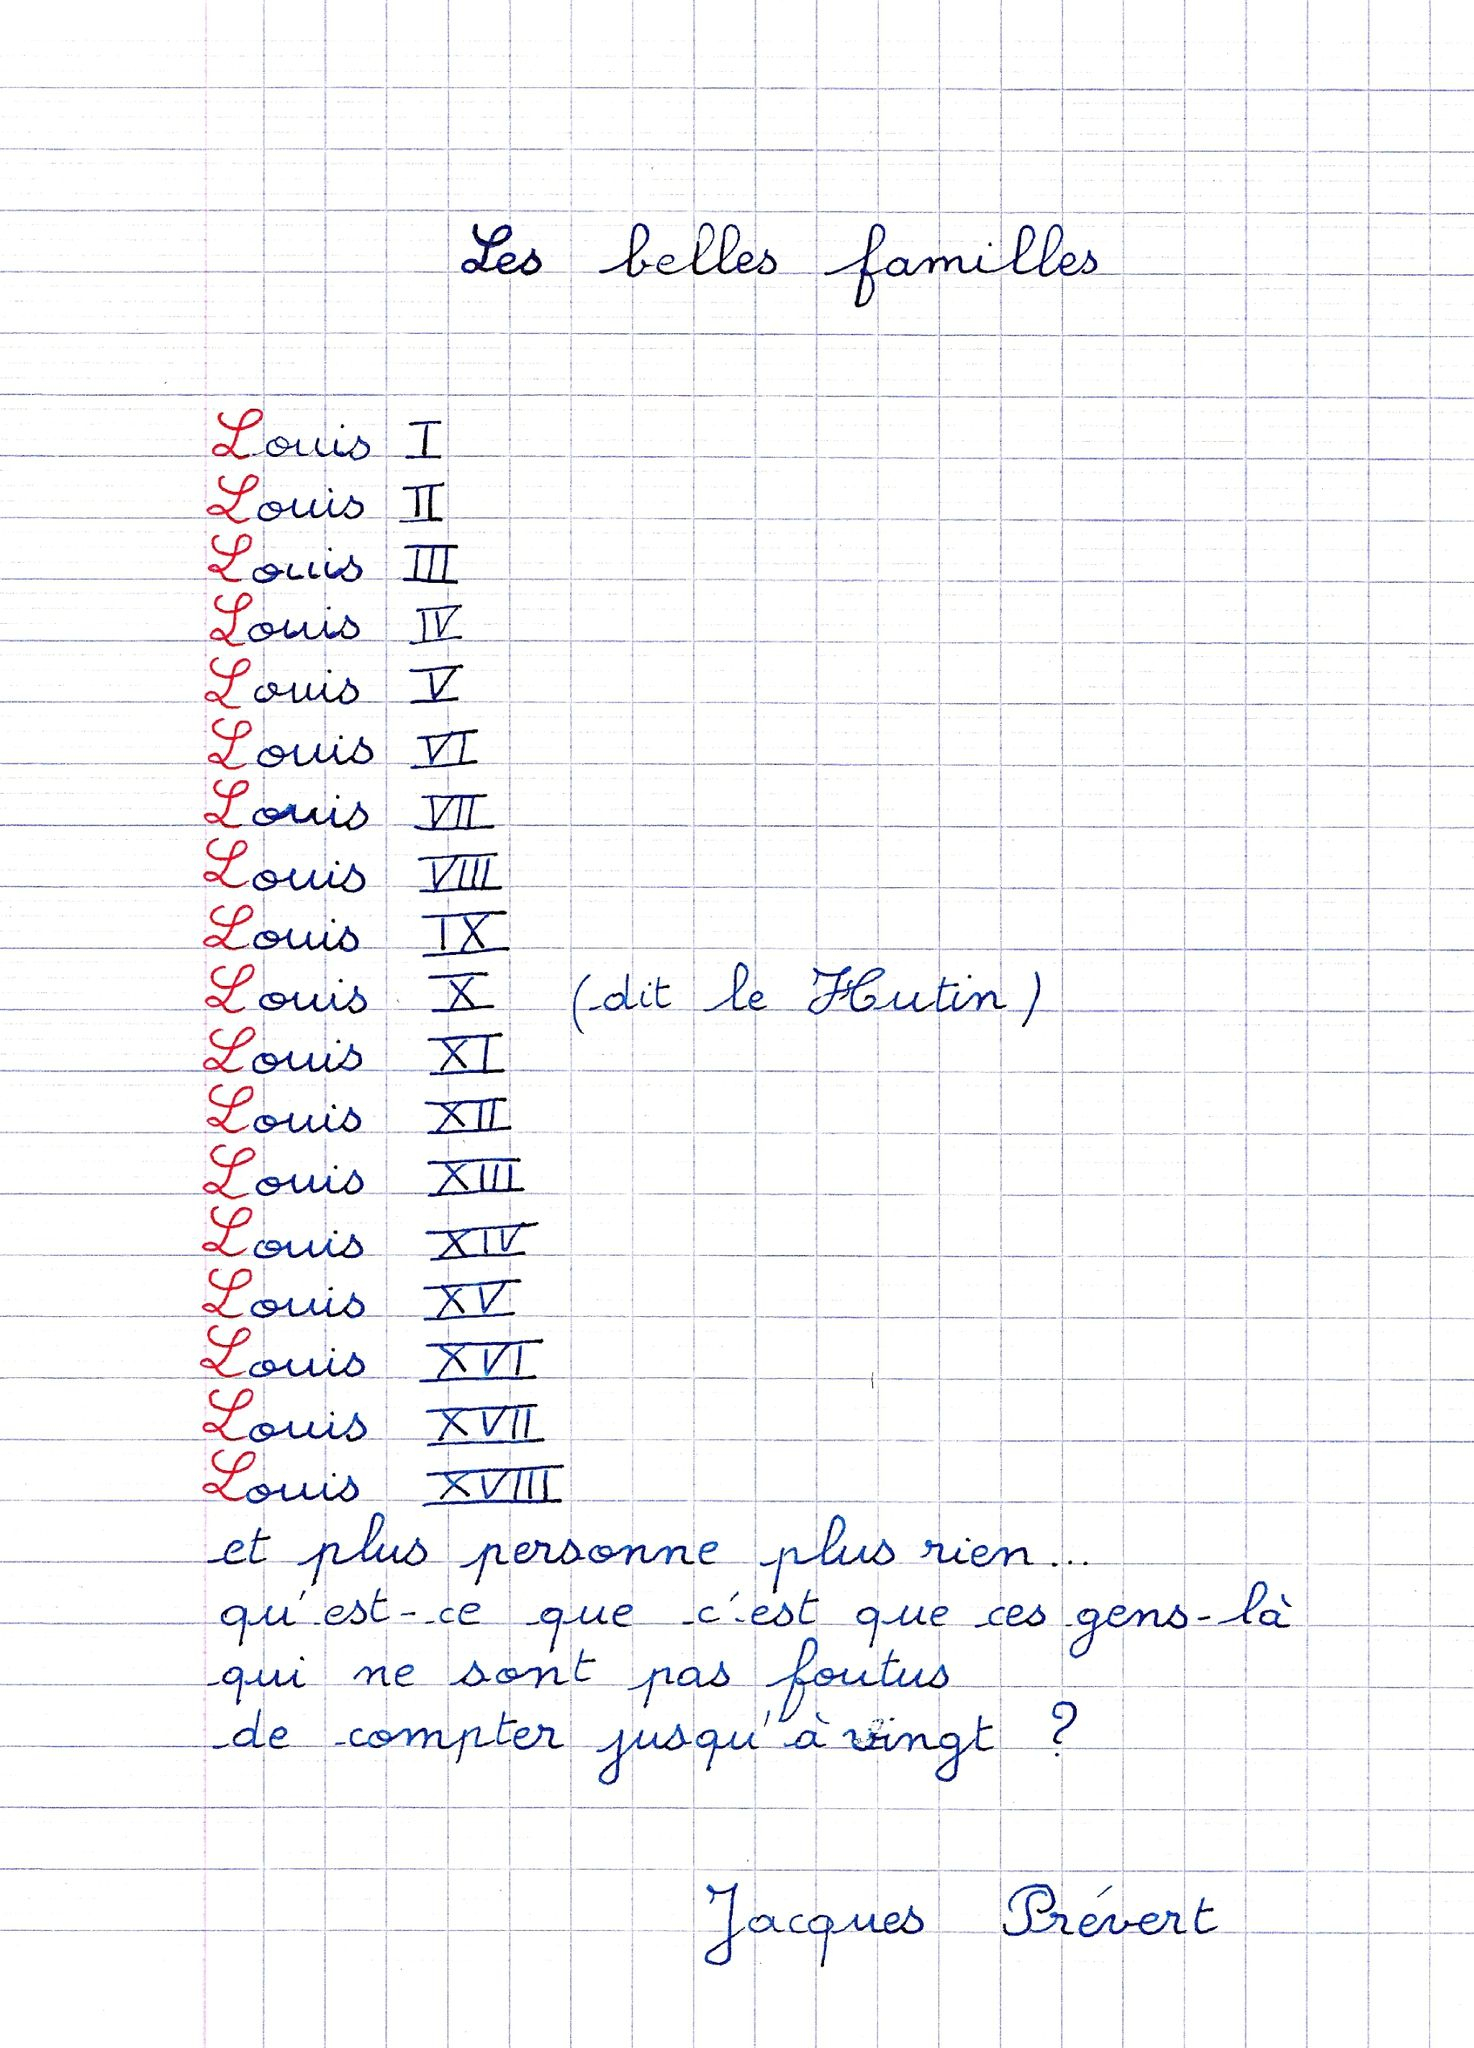 Les belles familles
Louis I
Louis II
Louis III
Louis IV
Louis V
Louis VI
Louis VII
Louis VIII
Louis IX
Louis X (dit le Hutin)
Louis XI
Louis XII
Louis XIII
Louis XIV
Louis XV
Louis XVI
Louis XVII
Louis XVIII
et plus personne plus rien...
qu'est-ce que c'est que ces gens-là
qui ne sont pas foutus
de compter jusqu'à vingt ?
Jacques Prévert